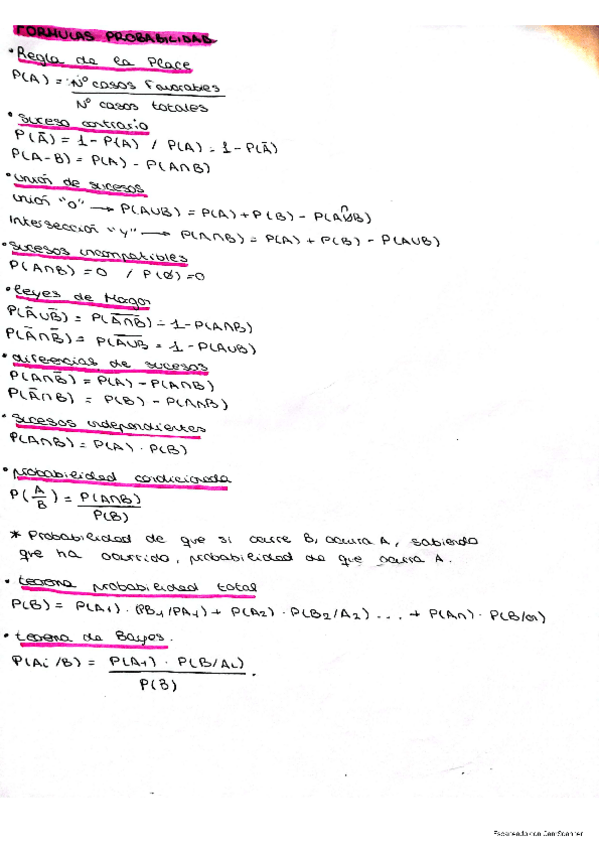 FORMULAS PROBABILIDAD
• Regla de la Place
P(A) = Nº casos favorables
Nº casos totales
• Suceso contrario
P(Ā) = 1 - P(A) / P(A) = 1 - P(Ā)
P(A-B) = P(A) - P(A∩B)
• Unión de sucesos
Unión "o" → P(A∪B) = P(A) + P(B) - P(A∩B)
Intersección "y" → P(A∩B) = P(A) + P(B) - P(A∪B)
• Sucesos incompatibles
P(A∩B) = 0 / P(Ø) = 0
• leyes de Magor
P(Ā∪B̄) = P(A∩B)‾ = 1 - P(A∩B)
P(Ā∩B̄) = P(A∪B‾ = 1 - P(A∪B)
• diferencias de sucesos
P(A∩B̄) = P(A) - P(A∩B)
P(Ā∩B) = P(B) - P(A∩B)
• Sucesos independientes
P(A∩B) = P(A) · P(B)
• probabilidad condicionada
P(A/B) = P(A∩B)
P(B)
* Probabilidad de que si ocurre B, ocurra A, sabiendo
que ha ocurrido, probabilidad de que ocurra A.
• teorema probabilidad total
P(B) = P(A1) · (PB1/PA1) + P(A2) · P(B2/A2) ... + P(An) · P(B/an)
• teorema de Bayes.
P(Ai/B) = P(A1) · P(B/Ai) .
P(B)
Escaneado con CamScanner